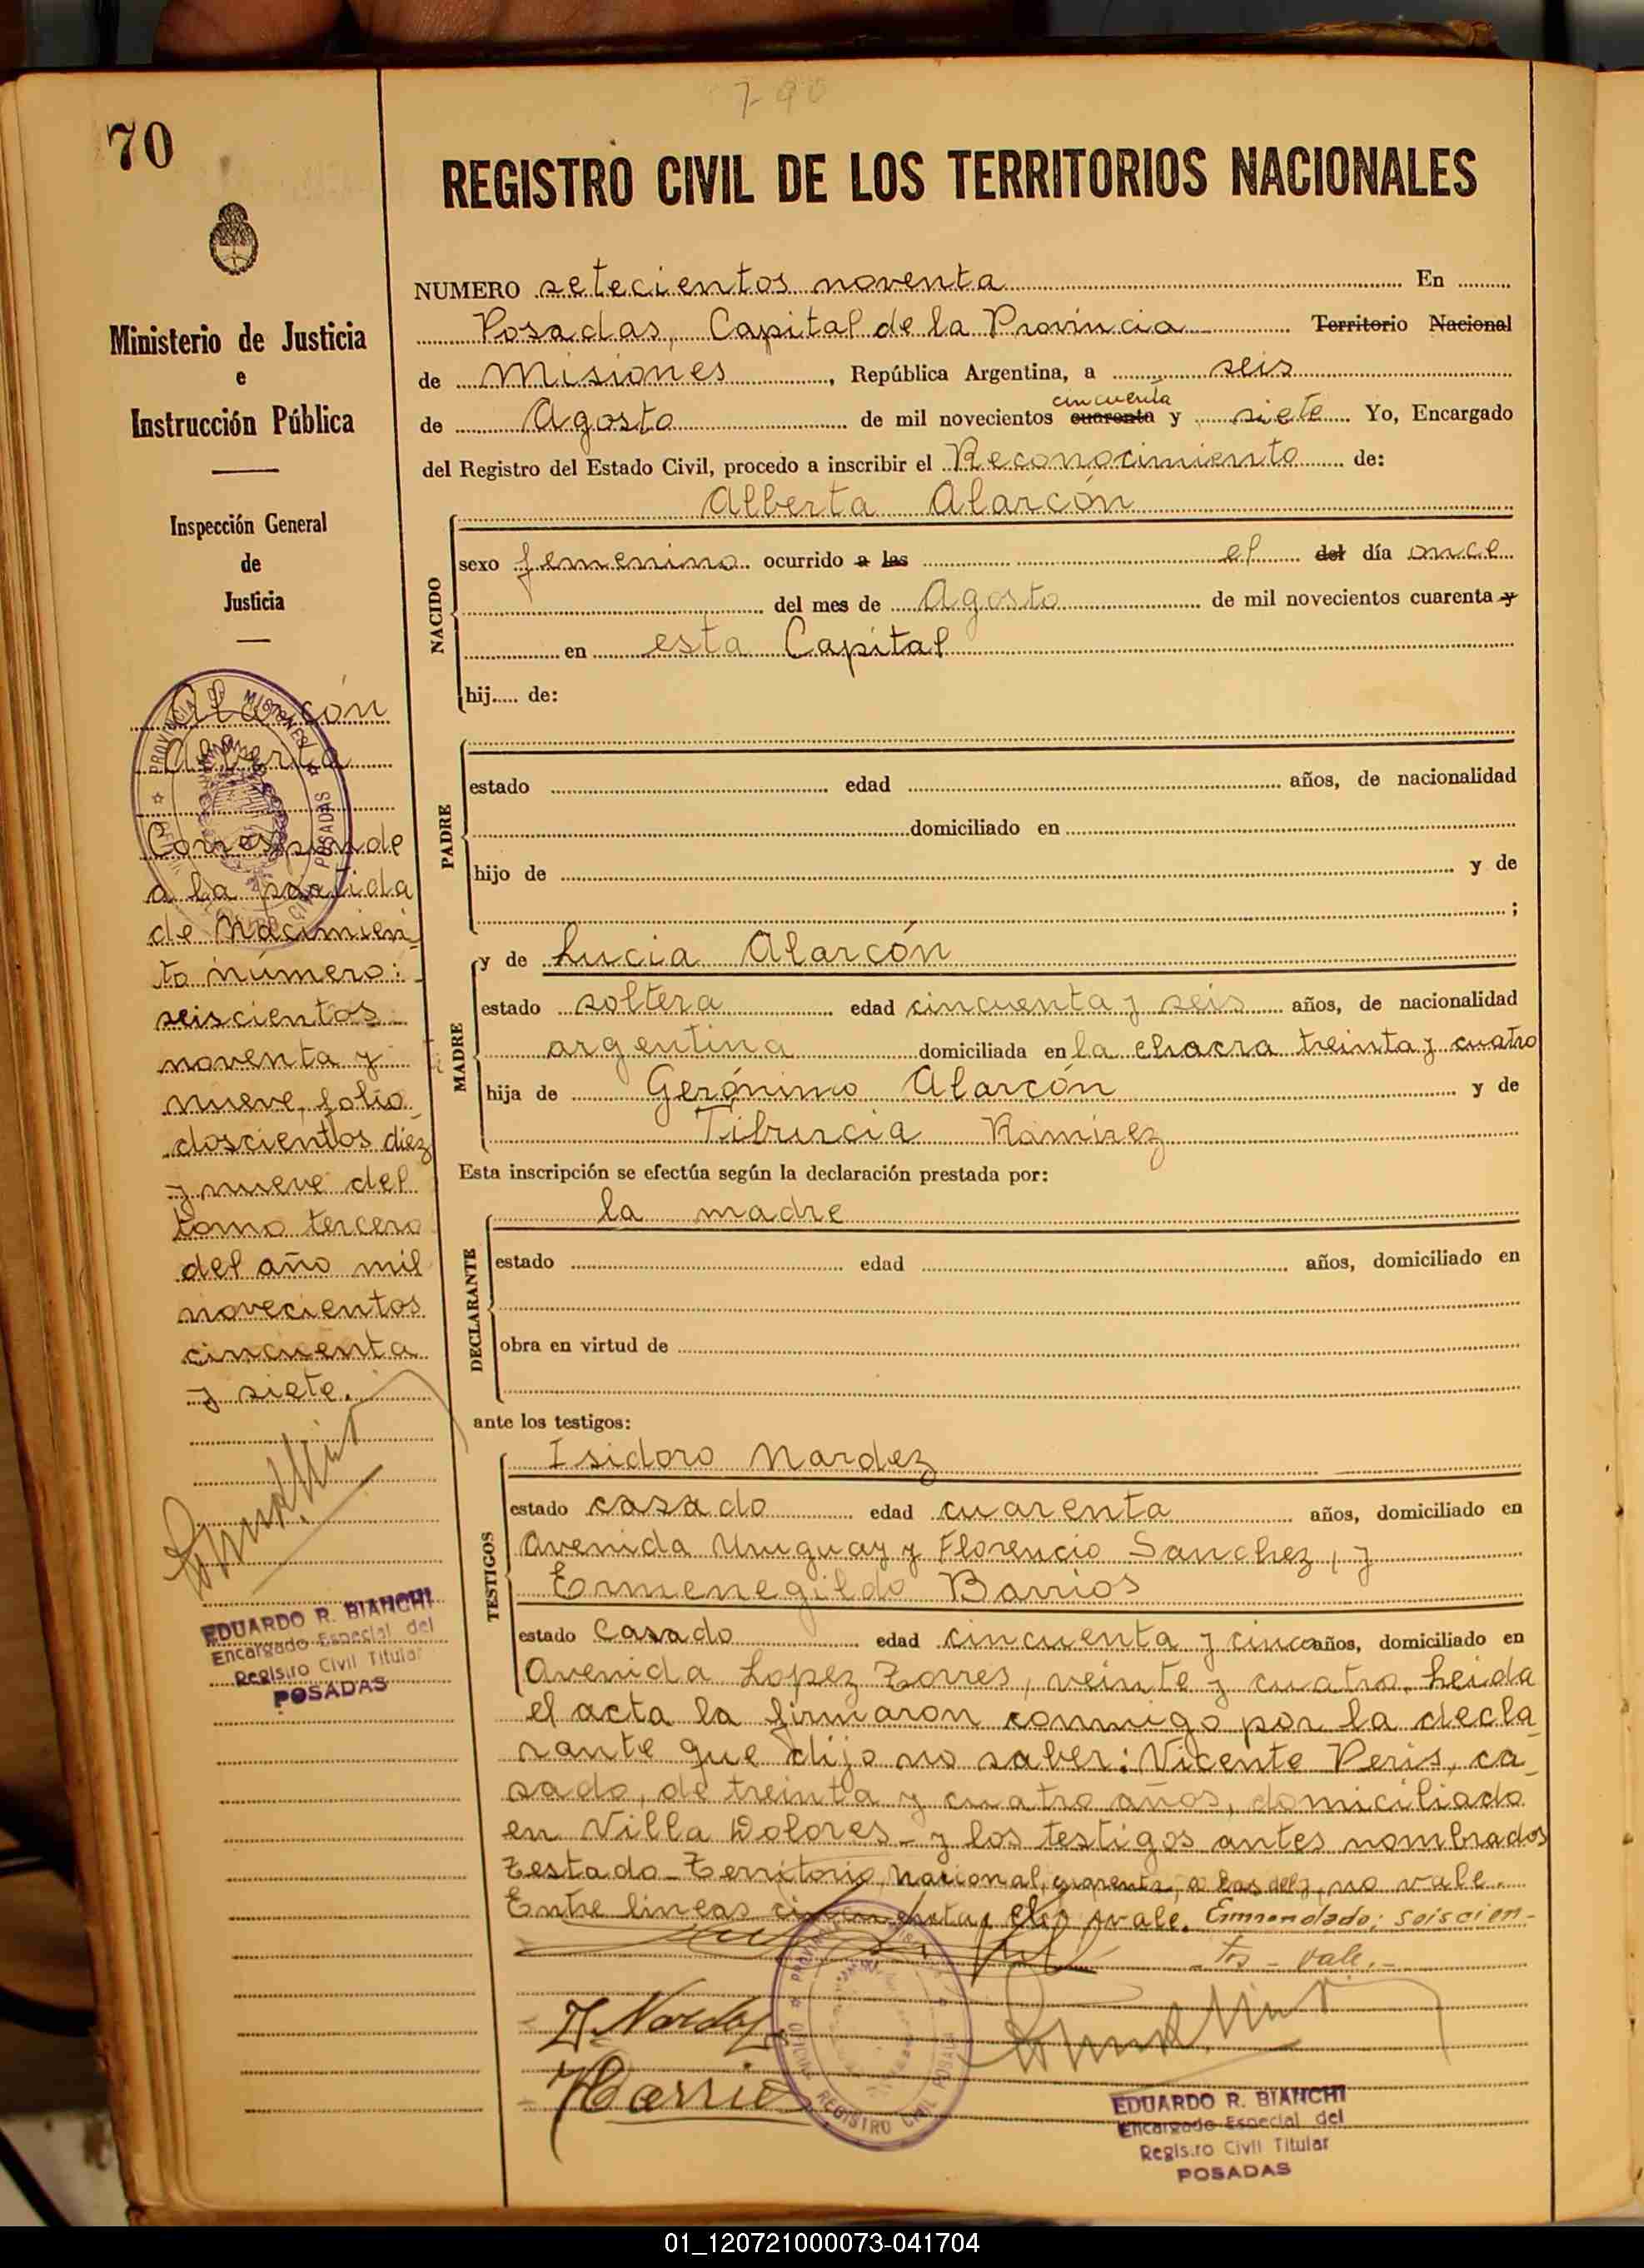 790
70
REGISTRO CIVIL DE LOS TERRITORIOS NACIONALES
Ministerio de Justicia
e
Instrucción Pública
Inspección General
de
Justicia
Alarcón
Alberta
Corresponde
a la partida
de Nacimien-
to número:
seiscientos
noventa y
nueve, folio
doscientos diez
y nueve del
tomo tercero
del año mil
novecientos
cincuenta
y siete.
EDUARDO R. BIANCHI
Encargado Especial del
Registro Civil Titular
POSADAS
NUMERO setecientos noventa En
Posadas, Capital de la Provincia Territorio Nacional
de Misiones, República Argentina, a seis
cincuenta
de Agosto de mil novecientos cuarenta y siete Yo, Encargado
del Registro del Estado Civil, procedo a inscribir el Reconocimiento de:
Alberta Alarcón
NACIDO
sexo femenino ocurrido a las el del día once
del mes de Agosto de mil novecientos cuarenta y
en esta Capital
hij..... de:
PADRE
estado edad años, de nacionalidad
domiciliado en
hijo de y de
;
MADRE
y de Lucia Alarcón
estado soltera edad cincuenta y seis años, de nacionalidad
argentina domiciliada en la chacra treinta y cuatro
hija de Gerónimo Alarcón y de
Tiburcia Ramirez
Esta inscripción se efectúa según la declaración prestada por:
la madre
DECLARANTE
estado edad años, domiciliado en
obra en virtud de
ante los testigos:
TESTIGOS
Isidoro Nardez
estado casado edad cuarenta años, domiciliado en
Avenida Uruguay y Florencio Sanchez, y
Ermenegildo Barrios
estado Casado edad cincuenta y cinco años, domiciliado en
Avenida Lopez Torres, veinte y cuatro. Leida
el acta la firmaron conmigo por la decla-
rante que dijo no saber: Vicente Peris, ca-
sado, de treinta y cuatro años, domiciliado
en Villa Dolores - y los testigos antes nombrados
Testado - Territorio, Nacional, cuarenta, a las del y, no vale.
Entre lineas cincuenta, el, vale. Enmendado: seiscien-
tos - vale.-
I. Nardez
Barrios
PROVINCIA DE MISIONES
REGISTRO CIVIL POSADAS
EDUARDO R. BIANCHI
Encargado Especial del
Registro Civil Titular
POSADAS
01_120721000073-041704